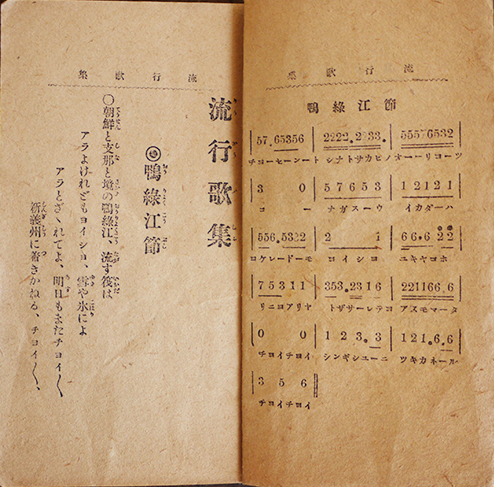 流行歌集
鴨綠江節
57.65356 2222.2233. 55576532
チヨーセーンート シナトサカヒノ オーーリヨーツ
3 0 57653 12121
コー ナガスーウ イカダーハ
556.5322 2 1 66.622
ヨケレードーモ ヨイシヨ ユキヤコホ
75311 353.2316 221166.6
リニヨアリヤ トザサーレテヨ アスモマータ
0 0 123.3 121.6.6
チヨイチヨイ シンギシユーニ ツキカネール
356
チヨイチヨイ
流行歌集
流行歌集
◎鴨綠江節
〇朝鮮と支那と境の鴨綠江、流す筏は
アラよけれどもヨイシヨ、雪や氷によ
アラとざされてよ、明日もまたチヨイ〱
新義州に着きかねる、チヨイ〱、